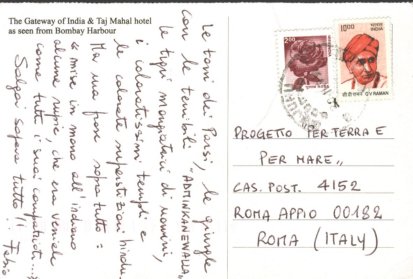 The Gateway of India & Taj Mahal hotel
as seen from Bombay Harbour
Le torri dei Parsi, le giungle
con le terribili "ADMINKANEWALLA",
le tigri mangiatrici di uomini,
i coloratissimi templi e
le colorate superstizioni hindu.
Ma una frase sopra tutto:
"mise in mano all'indiano
alcune rupie, che era veniale
come tutti i suoi compatrioti..."
Salgari sapeva tutto!! Fabio
INDIA
भारत
1000
INDIA
C V RAMAN
PROGETTO PER TERRA E
PER MARE"
CAS. POST. 4152
ROMA APPIO 00182
ROMA (ITALY)